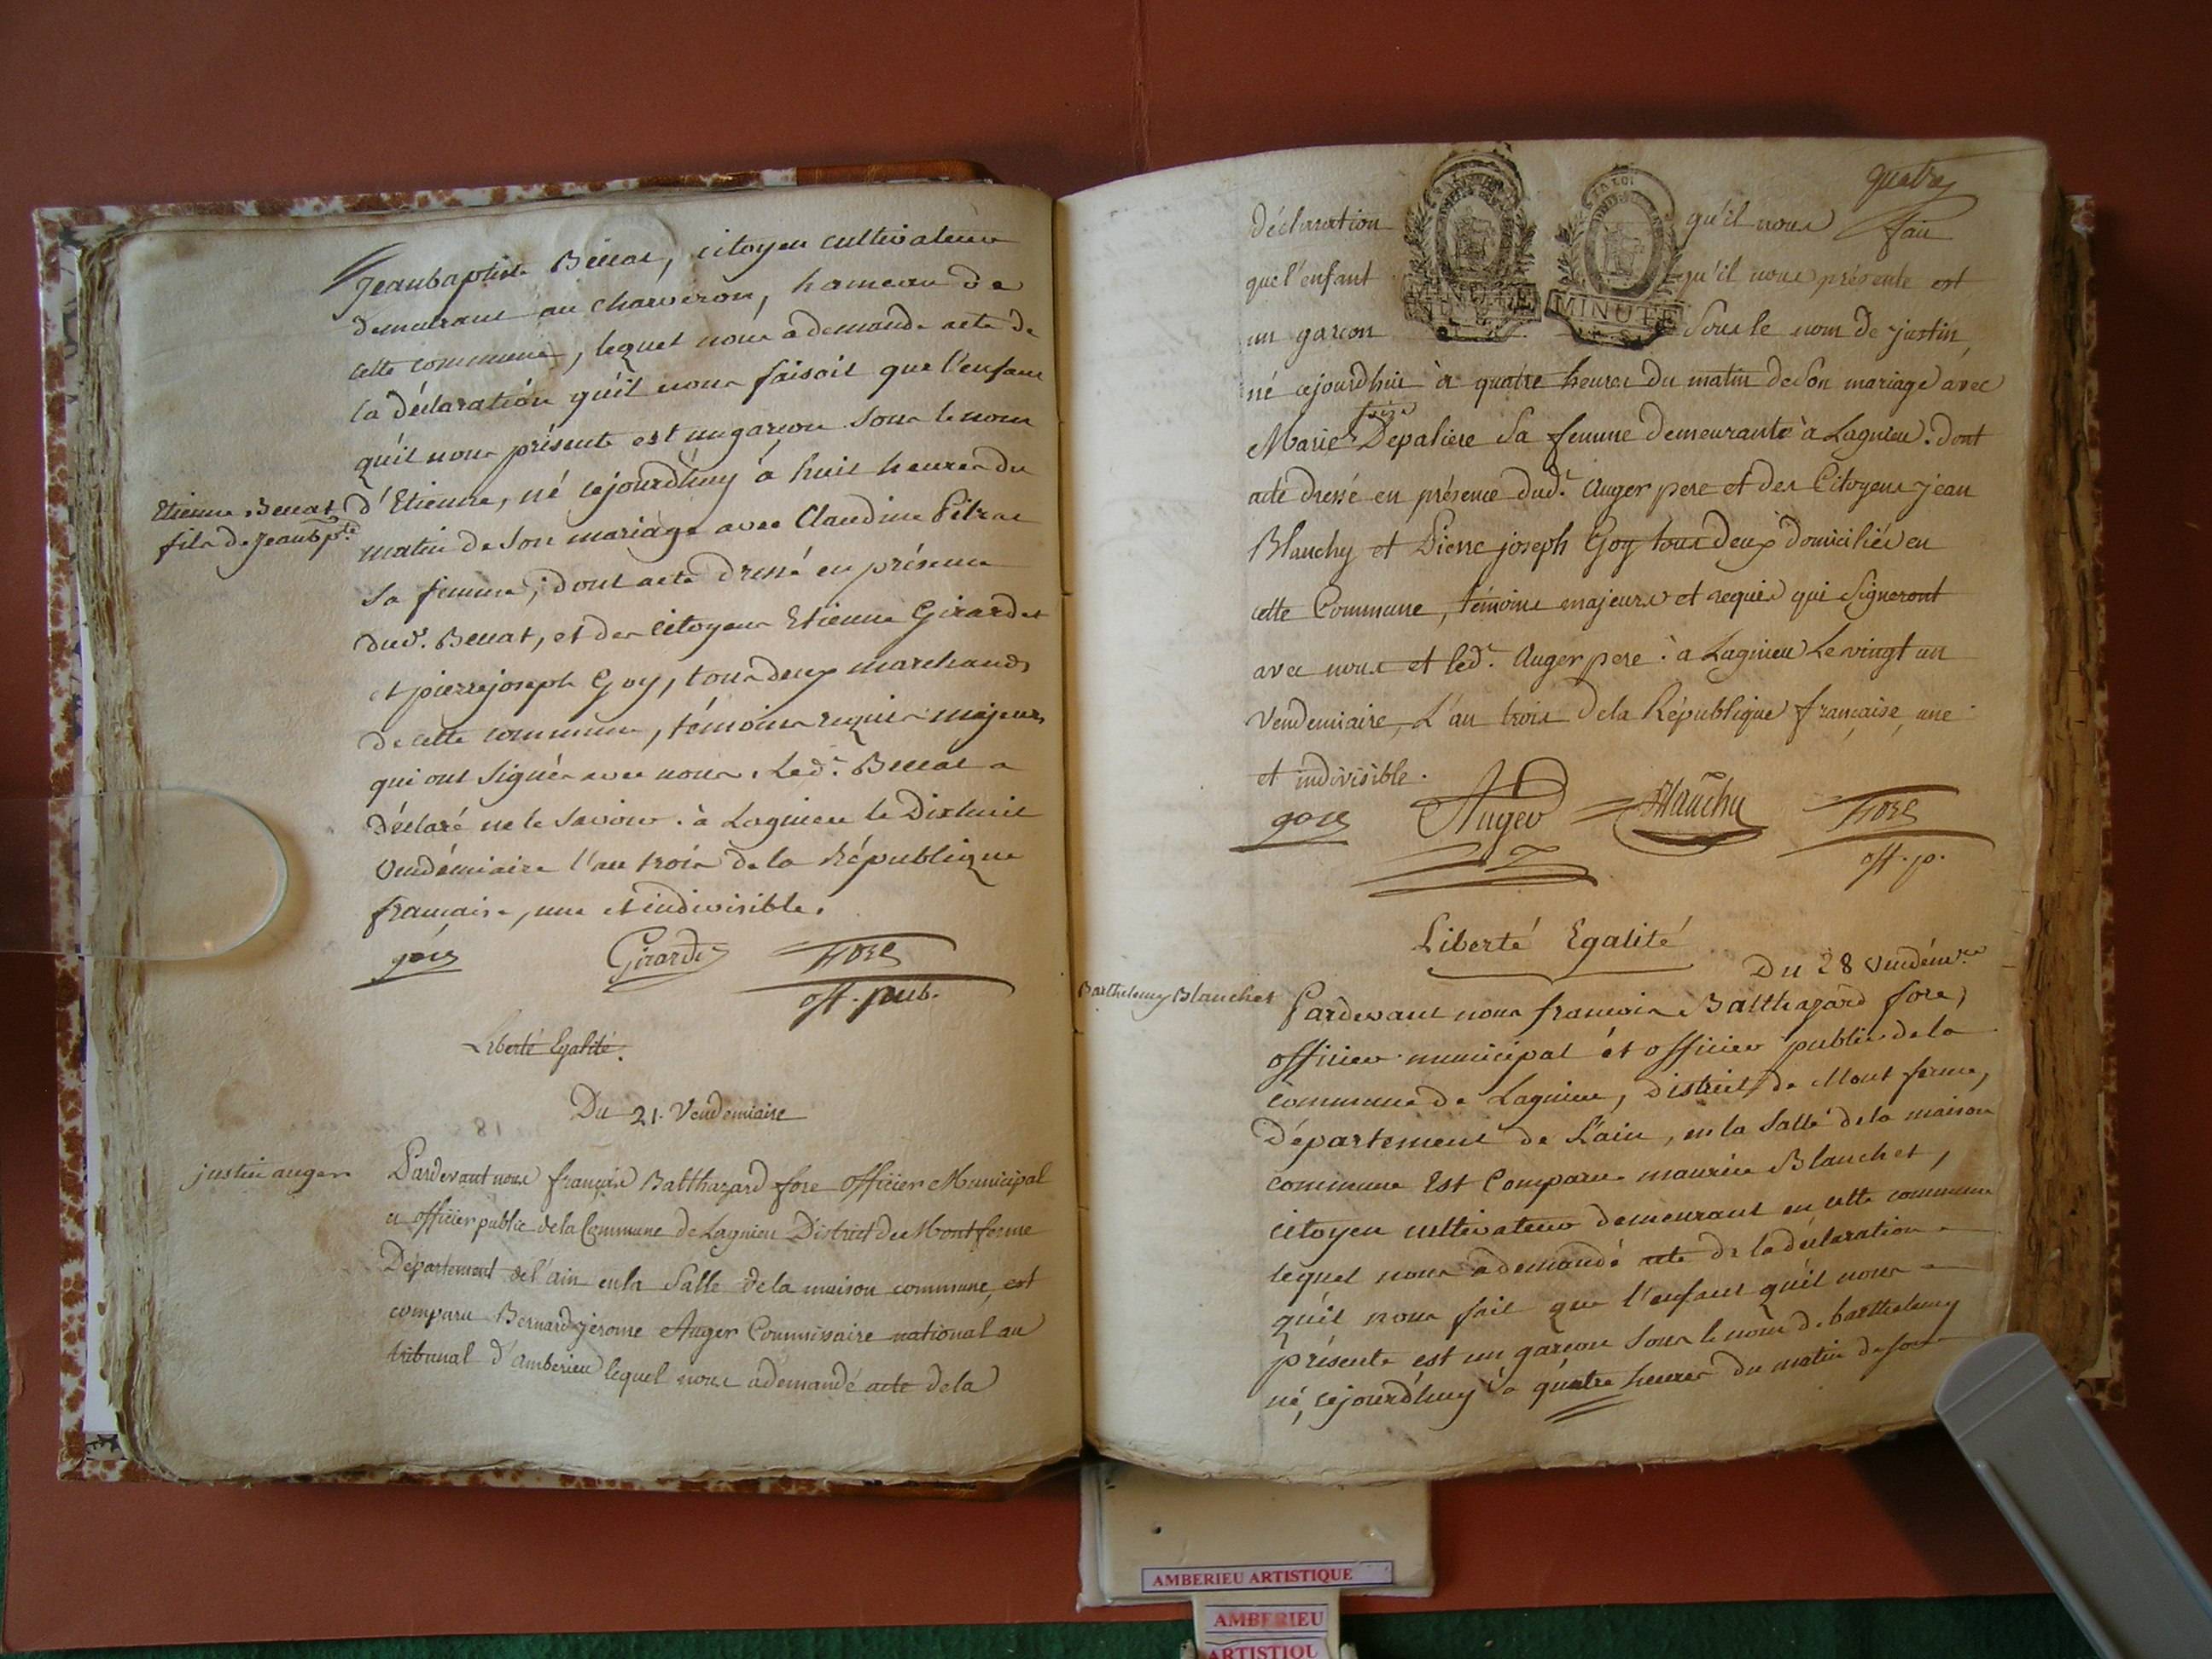 Jeanbaptiste Beccat, citoyen cultivateur
demeurant au charveron, hameau de
cette commune, lequel nous a demandé acte de
la déclaration qu'il nous faisoit que l'enfant
qu'il nous présente est un garçon sous le nom
Etienne Beccat
fils de Jeanbpte
d'Etienne, né cejourd'huy à huit heures du
matin de son mariage avec Claudine
sa femme, dont acte dressé en présence
dud. Beccat, et des citoyens Etienne Girardet
et pierrejoseph Goy, tous deux marchands
de cette commune, témoins requis majeurs
qui ont signés avec nous. Led. Beccat a
déclaré ne le savoir. à Lagnieu le Dixhuit
Vendémiaire l'an trois de la République
française, une et indivisible.
goy Girardet fore
off. pub.
Liberté Egalité.
Du 21. Vendemiaire
justin auger
Pardevant nous françois Balthazard fore officier Municipal
et officier public de la Commune de Lagnieu District de Montferme
Département de l'ain en la Salle de la maison commune, est
comparu Bernard jérome Auger Commissaire national au
tribunal d'amberieu lequel nous a demandé acte de la
quatre
déclaration qu'il nous fait
que l'enfant qu'il nous présente est
MINUTE
MINUTE
un garcon sous le nom de justin,
né cejourdhui à quatre heures du matin de son mariage avec
Marie Depaliere sa femme demeurante à Lagnieu. dont
acte dressé en présence dud. Auger pere et des Citoyens jean
Blanchy et Pierre joseph Goy tous deux domiciliés en
cette Commune, témoins majeurs et requis qui signeront
avec nous et led. Auger pere. à Lagnieu Le vingt un
Vendemiaire, L'an trois de la République française, une
et indivisible.
goy Auger Blanchy fore
off. p.
Liberté Egalité
Du 28 Vendémre
Barthelemy Blanchet
Pardevant nous francois Balthazard fore,
officier municipal et officier public de la
commune de Lagnieu, district de Mont ferme,
Département de L'ain, en la salle de la maison
commune Est Comparu maurice Blanchet,
citoyen cultivateur demeurant en cette commune
lequel nous a demandé acte de la déclaration
qu'il nous fait que l'enfant qu'il nous
présente est un garçon sous le nom de barthelemy
né, cejourd'huy à quatre heures du matin de son
AMBERIEU ARTISTIQUE
AMBERIEU
ARTISTIQU